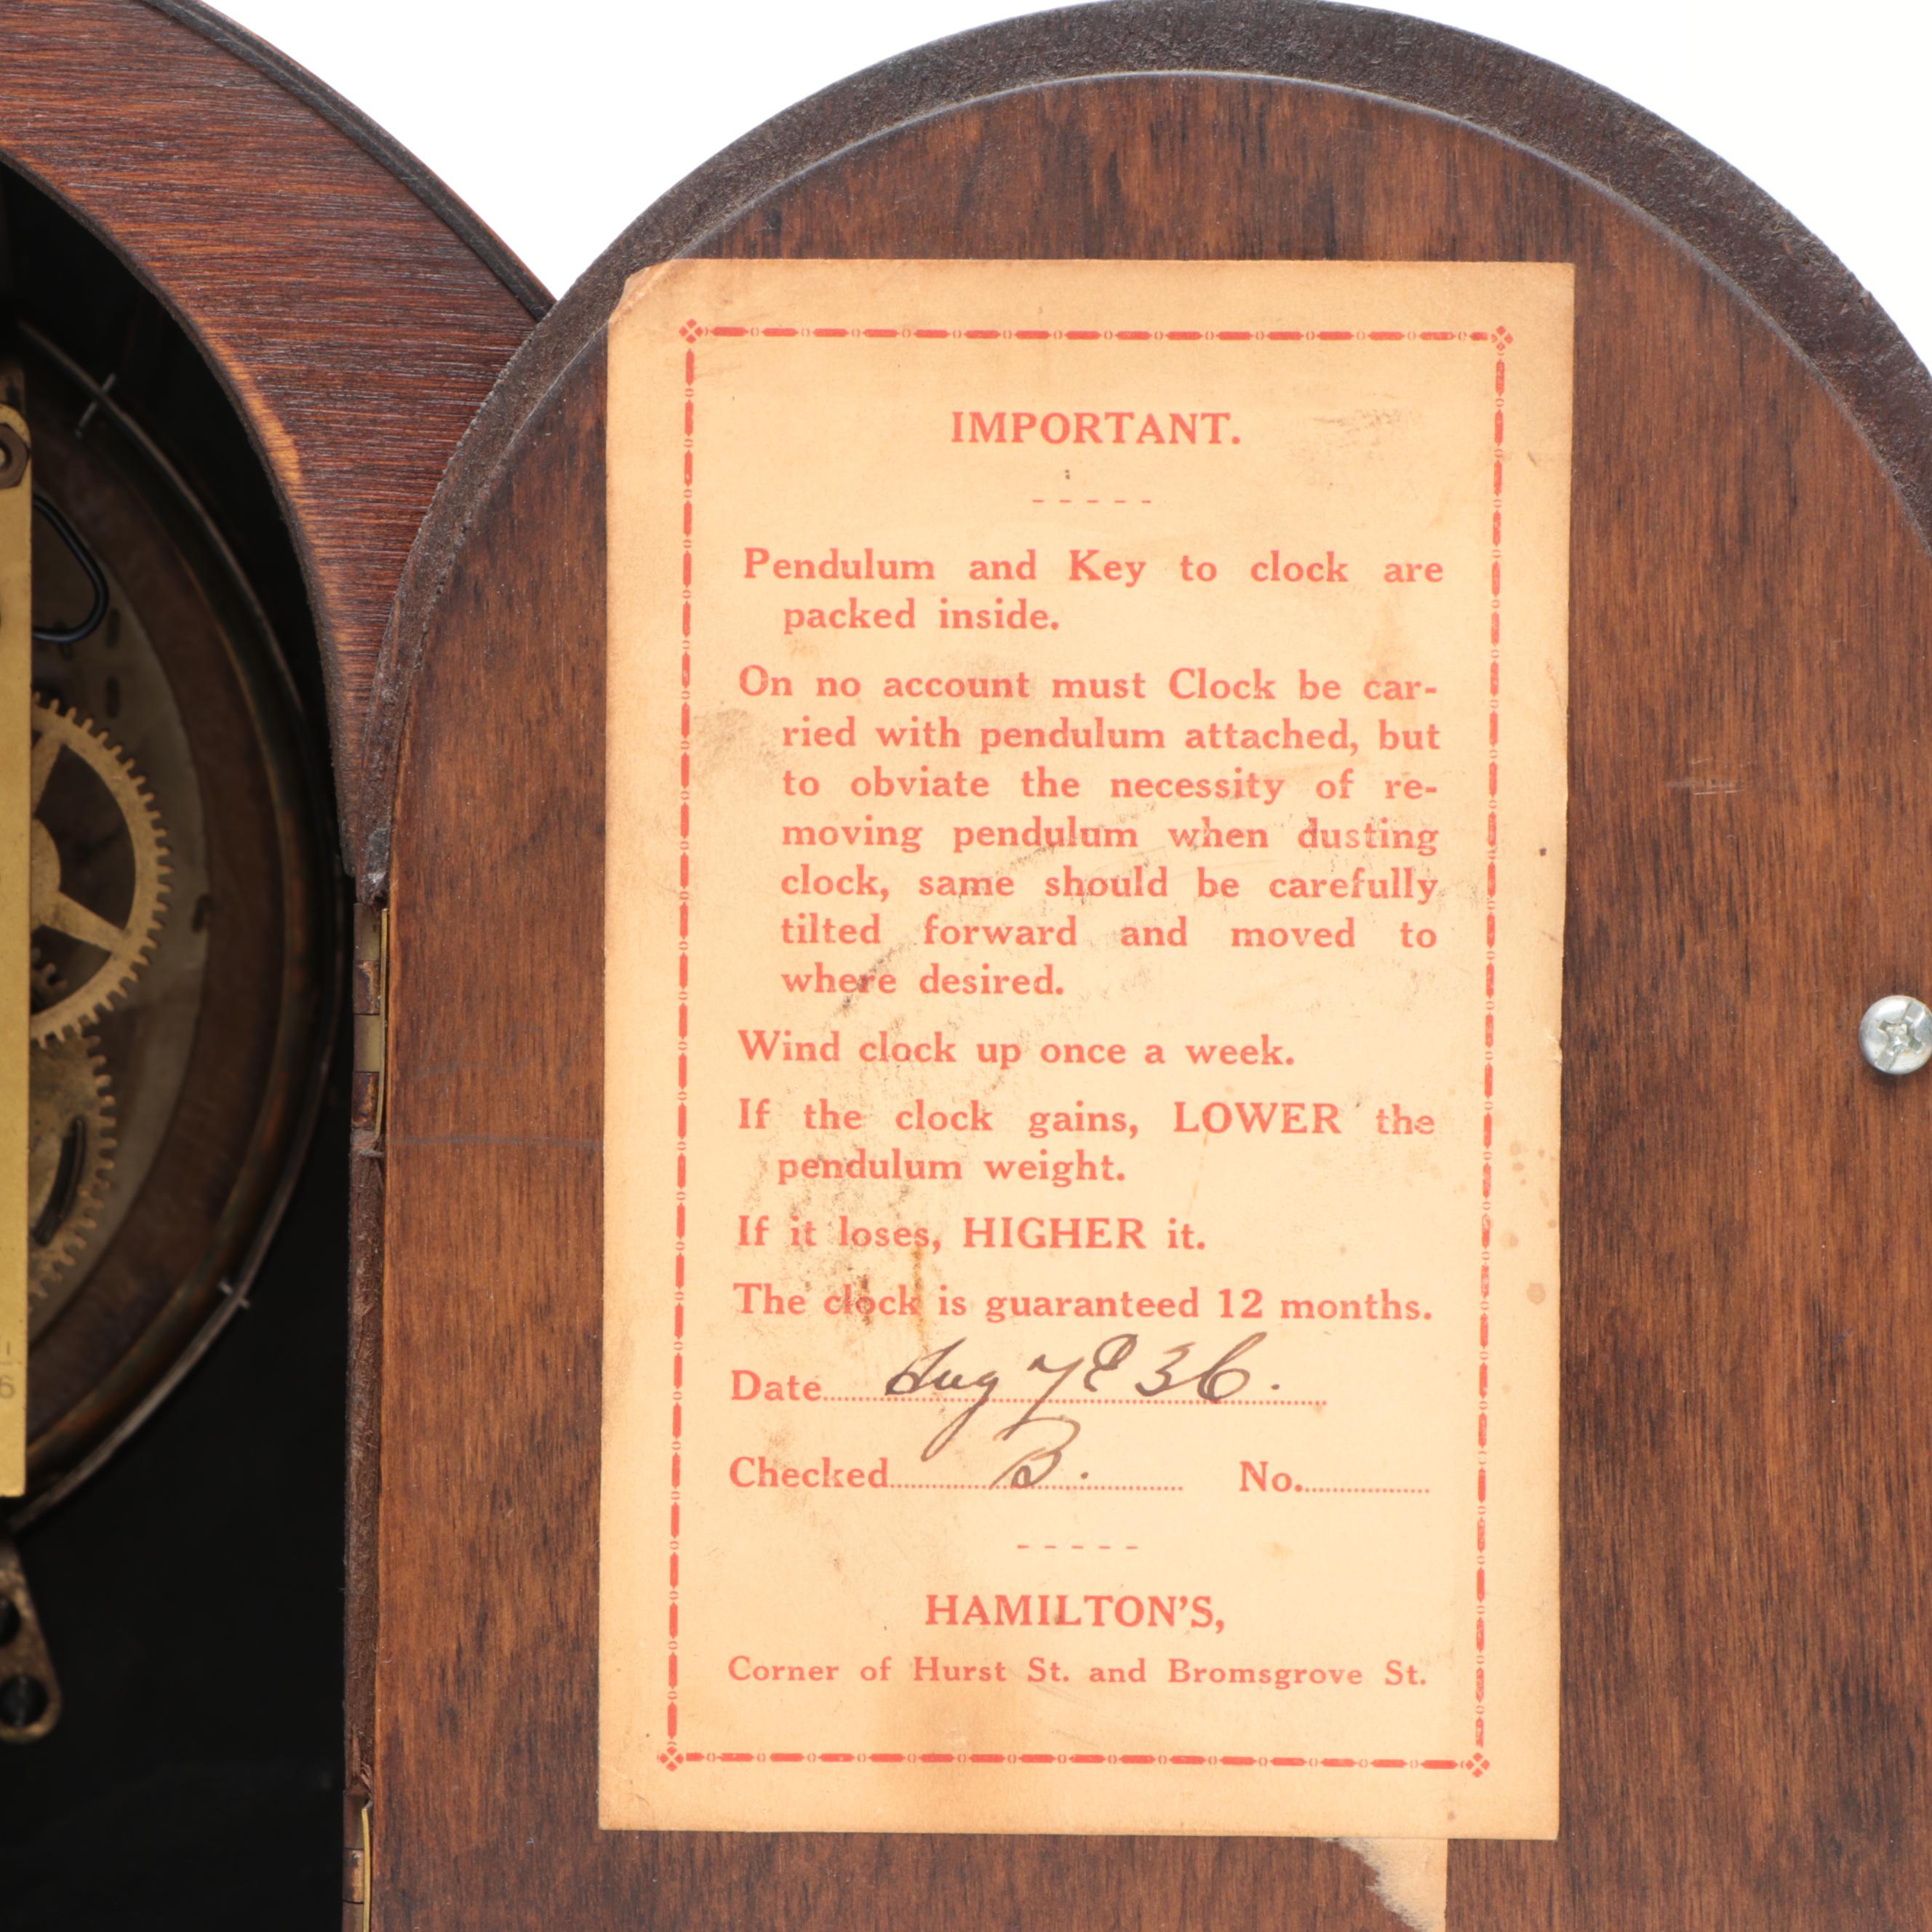 IMPORTANT.
Pendulum and Key to clock are
packed inside.
On no account must Clock be car-
ried with pendulum attached, but
to obviate the necessity of re-
moving pendulum when dusting
clock, same should be carefully
tilted forward and moved to
where desired.
Wind clock up once a week.
If the clock gains, LOWER the
pendulum weight.
If it loses, HIGHER it.
The clock is guaranteed 12 months.
Date Aug 7 36.
Checked B. No.
HAMILTON'S,
Corner of Hurst St. and Bromsgrove St.